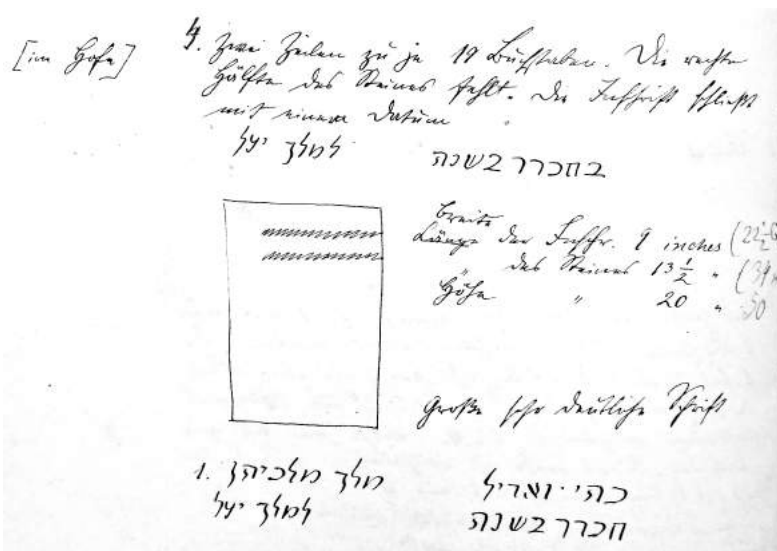 [im Hofe] 4. Zwei Zeilen zu je 19 Buchstaben. Die rechte
Hälfte des Steines fehlt. Die Inschrift schließt
mit einem Datum
בחכרר בשנה למלך יעל
Breite
Länge der Inschr. 9 inches (22½
" des Steines 13½ " (34
Höhe " 20 " 50
Große sehr deutliche Schrift
1. כהי · ואריל מלך מלכיהן
חכרר בשנה למלך יעל